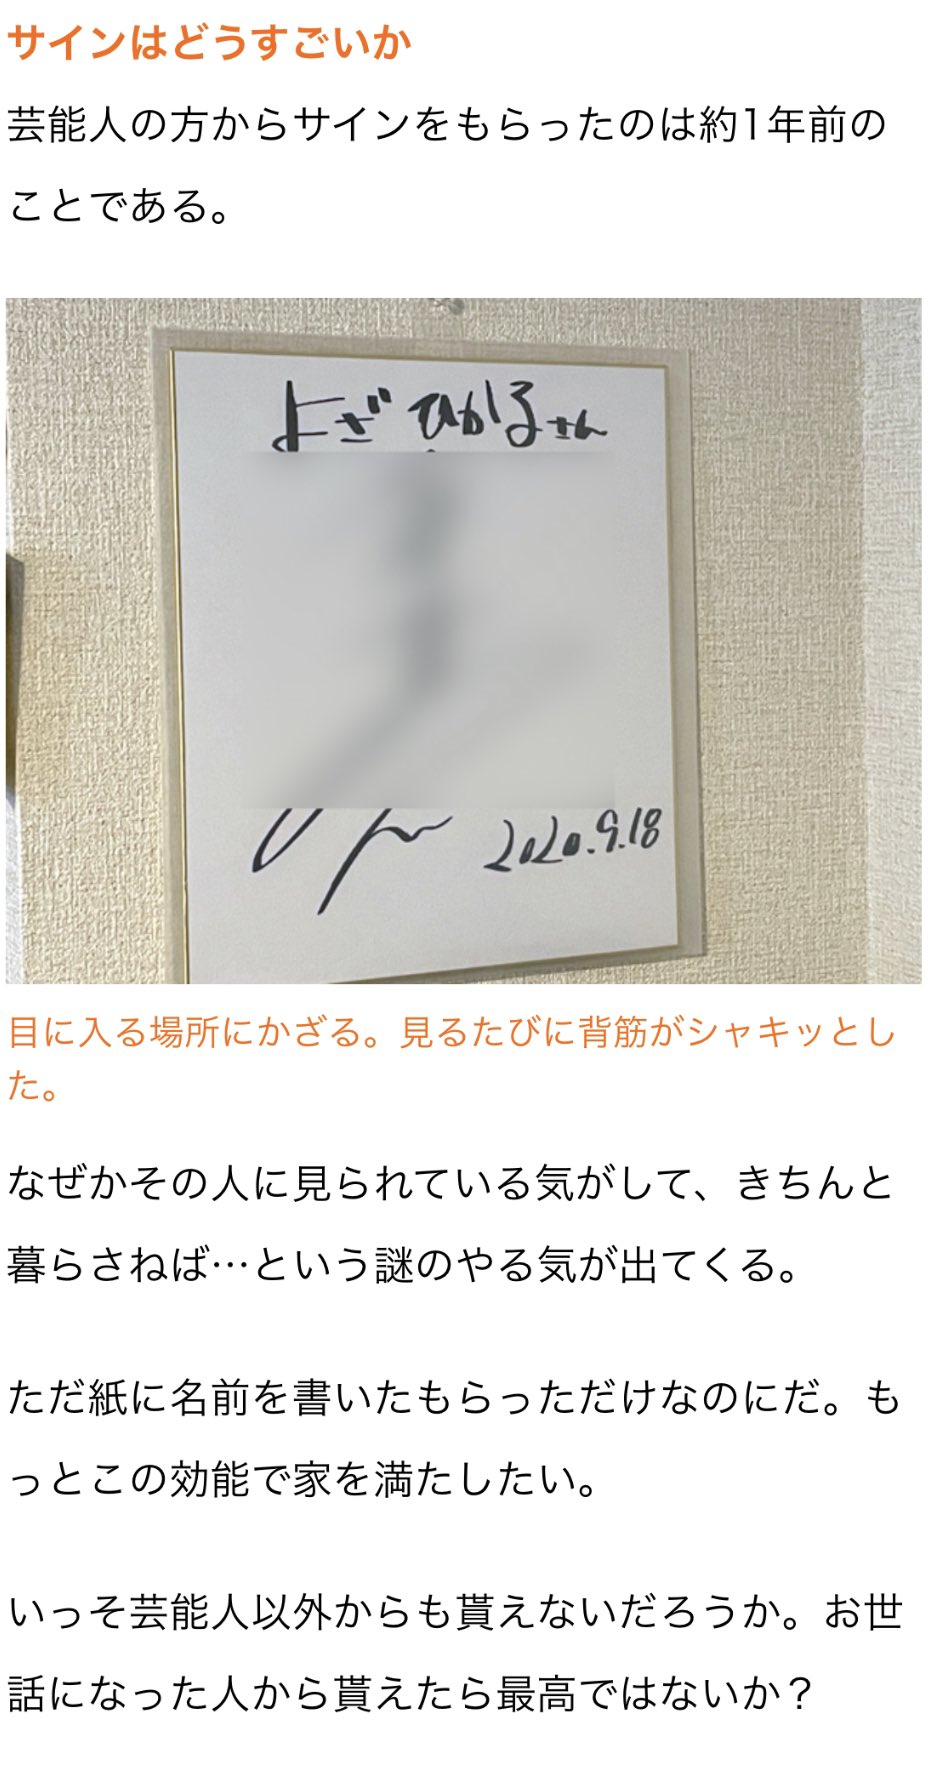 サインはどうすごいか
芸能人の方からサインをもらったのは約1年前の
ことである。
よざひかるさん
2020.9.18
目に入る場所にかざる。見るたびに背筋がシャキッとし
た。
なぜかその人に見られている気がして、きちんと
暮らさねば…という謎のやる気が出てくる。
ただ紙に名前を書いたもらっただけなのにだ。も
っとこの効能で家を満たしたい。
いっそ芸能人以外からも貰えないだろうか。お世
話になった人から貰えたら最高ではないか？